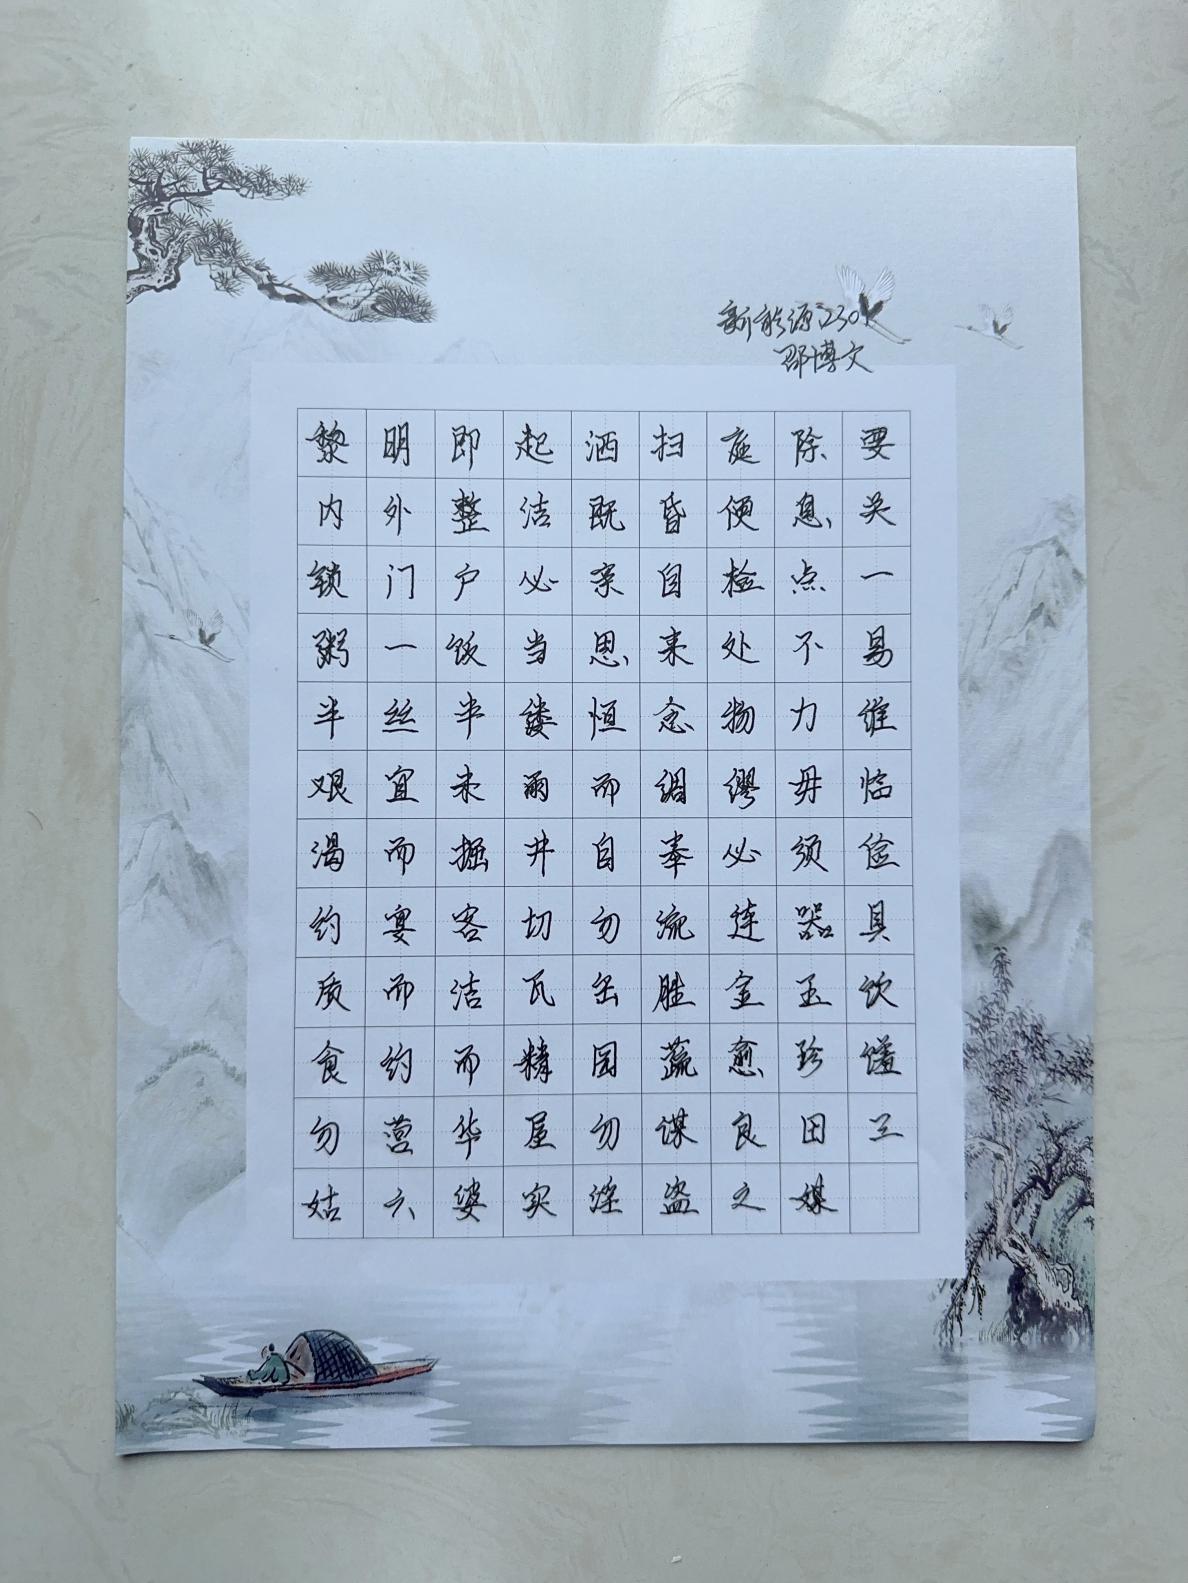 新能源2301
邵博文
黎明即起洒扫庭除要
内外整洁既昏便息关
锁门户必亲自检点一
粥一饭当思来处不易
半丝半缕恒念物力维
艰宜未雨而绸缪毋临
渴而掘井自奉必须俭
约宴客切勿流连器具
质而洁瓦缶胜金玉饮
食约而精园蔬愈珍馐
勿营华屋勿谋良田三
姑六婆实淫盗之媒